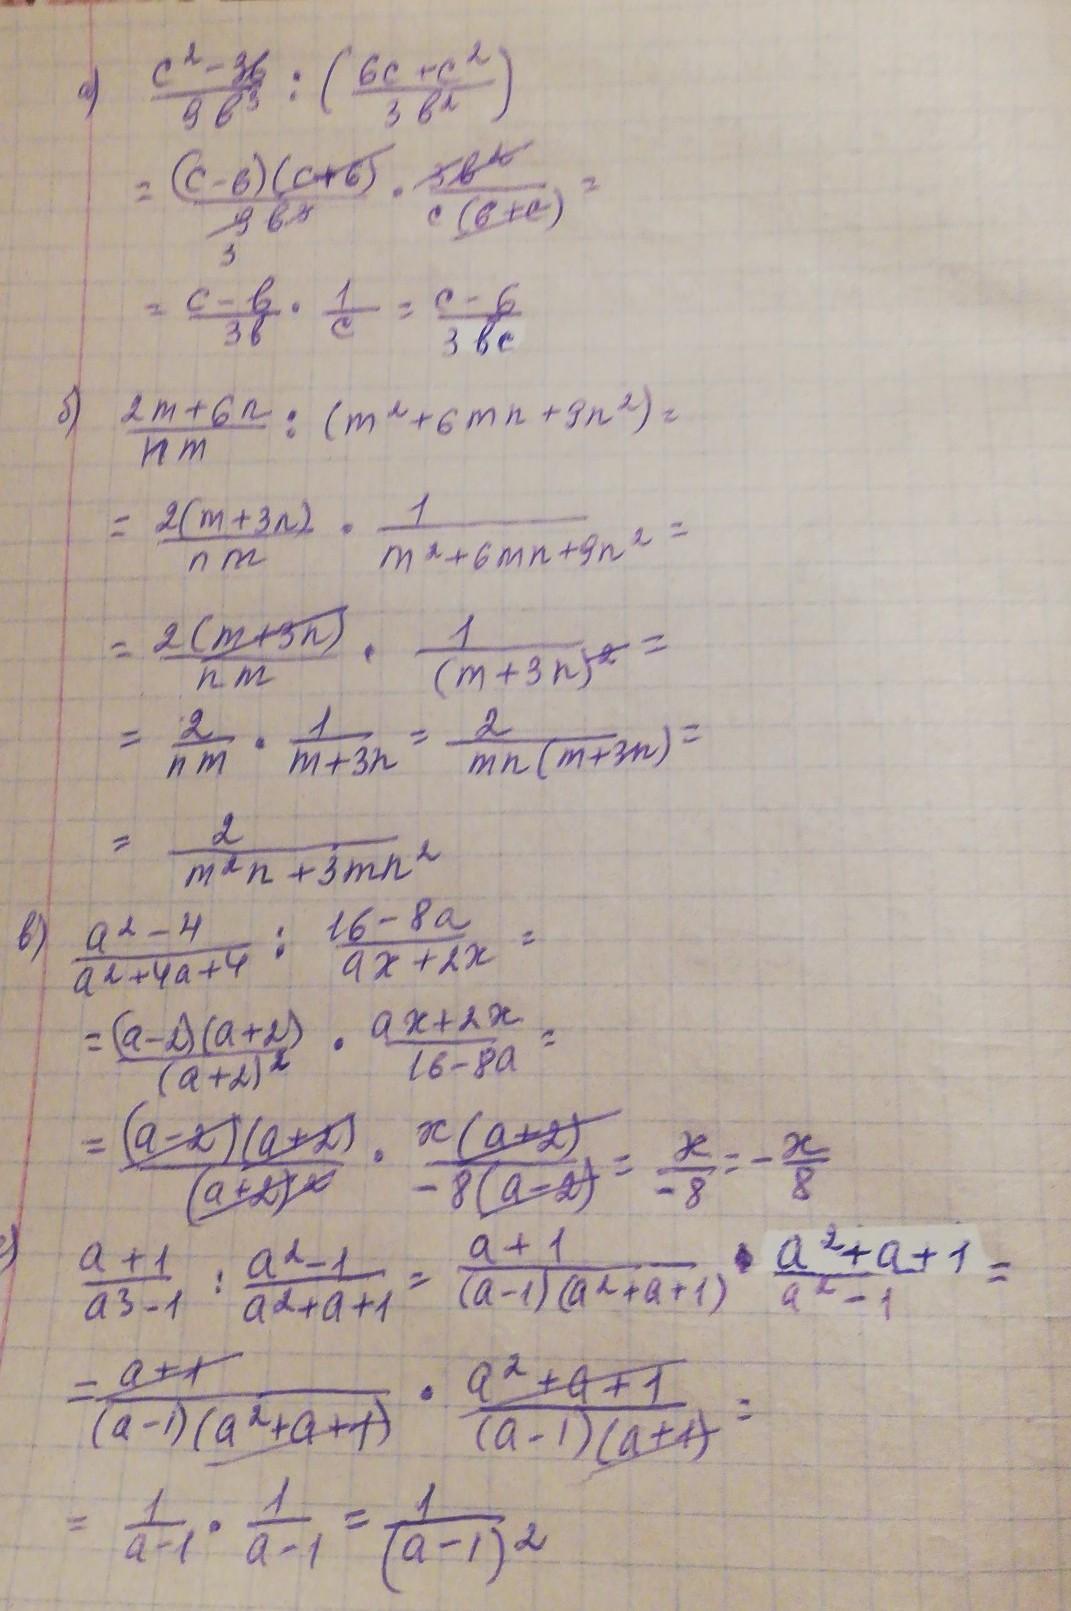 а) (c² - 3в)/(9в³) : ((6c + c²)/(3в²))
= ((c-в)(c+в))/(9в³) · (3в²)/(c(в+c)) =
3
= (c-в)/(3в) · 1/c = (c-б)/(3вc)
б) (2m+6n)/(nm) : (m²+6mn+9n²) =
= (2(m+3n))/(nm) · 1/(m²+6mn+9n²) =
= (2(m+3n))/(nm) · 1/(m+3n)² =
= 2/(nm) · 1/(m+3n) = 2/(mn(m+3n)) =
= 2/(m²n+3mn²)
в) (a²-4)/(a²+4a+4) : (16-8a)/(ax+2x) =
= ((a-2)(a+2))/(a+2)² · (ax+2x)/(16-8a) =
= ((a-2)(a+2))/(a+2)² · (x(a+2))/(-8(a-2)) = x/-8 = -x/8
г) (a+1)/(a3-1) : (a²-1)/(a²+a+1) = (a+1)/((a-1)(a²+a+1)) · (a²+a+1)/(a²-1) =
= (a+1)/((a-1)(a²+a+1)) · (a²+a+1)/((a-1)(a+1)) =
= 1/(a-1) · 1/(a-1) = 1/(a-1)²